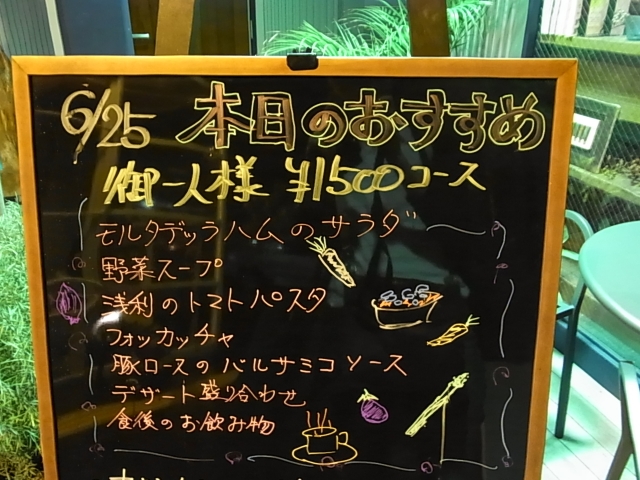 6/25 本日のおすすめ
御一人様 ¥1500コース
モルタデッラハムのサラダ
野菜スープ
浅利のトマトパスタ
フォッカッチャ
豚ロースのバルサミコソース
デザート盛り合わせ
食後のお飲み物